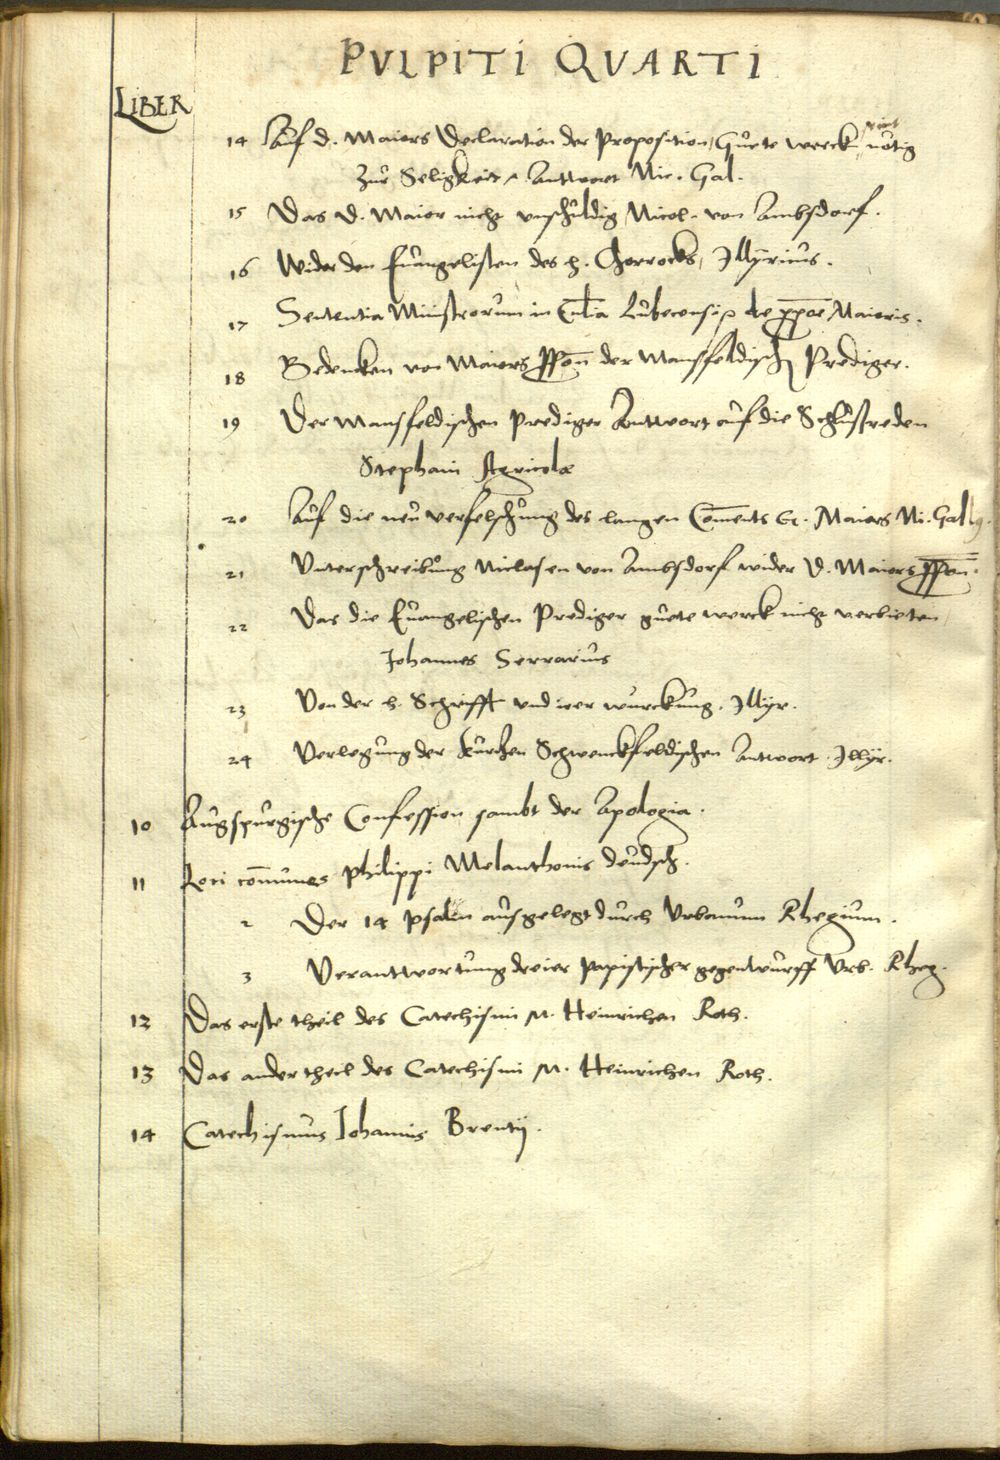 PVLPITI QVARTI
LIBER
14 Auf d. Maiors Declaration der Proposition, Guete werck nötig
zur Seligkeit, Antwort Nic. Gal.
15 Das D. Maior nicht vnschuldig Nicol. von Ambsdorf.
16 Wider den Euangelisten des h. Chorrocks, Illÿricus.
17 Sententia Ministrorum in Lubecensi de Maioris.
18 Bedencken von Maiors der Mansfeldisch Prediger.
19 Der Mansfeldischen Prediger Antwort auf die Schlusreden
Stephani Agricolæ
20 Auf die neu verfelschung des langen Coments G. Maiors Ni. Gallg.
21 Vnterschreibung Niclasen von Ambsdorf wider D. Maiors
22 Das die Euangelischen Prediger guete werck nicht verbieten,
Johannes Serrarius
23 Von der h. Schrifft vnd irer wurckung. Illÿr.
24 Verlegung der kurtzen Schwenckfeldischen Antwort. Illÿr.
10 Augspurgische Confession sambt der Apologia.
11 Loci comunes Philippi Melanthonis deudsch.
2 Der 14 psalm ausgelegt durch Vrbanum Rhegium.
3 Verantwortung dreier papistischer gegenwurff Vrb. Rheg.
12 Das erste theil des Catechismi M. Heinrichen Roth.
13 Das ander theil des Catechismi M. Heinrichen Roth.
14 Catechismus Iohannis Brentij.